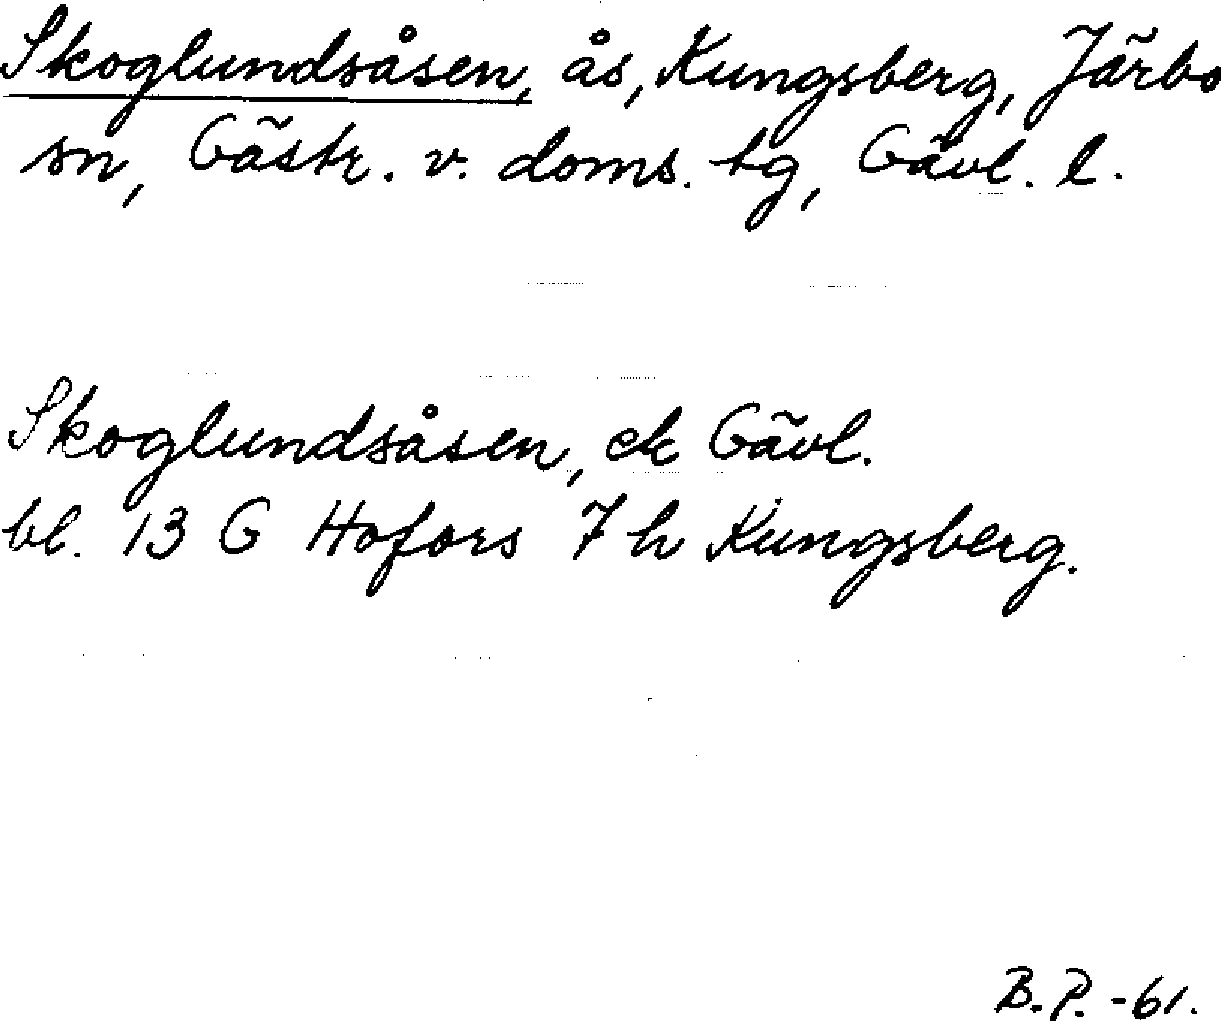 Skoglundsåsen, ås, Kungsberg, Järbo
sn, Gästr. v. doms. tg, Gävl. l.
Skoglundsåsen, ek Gävl.
bl. 13 G Hofors 7 h Kungsberg.
B.P. -61.